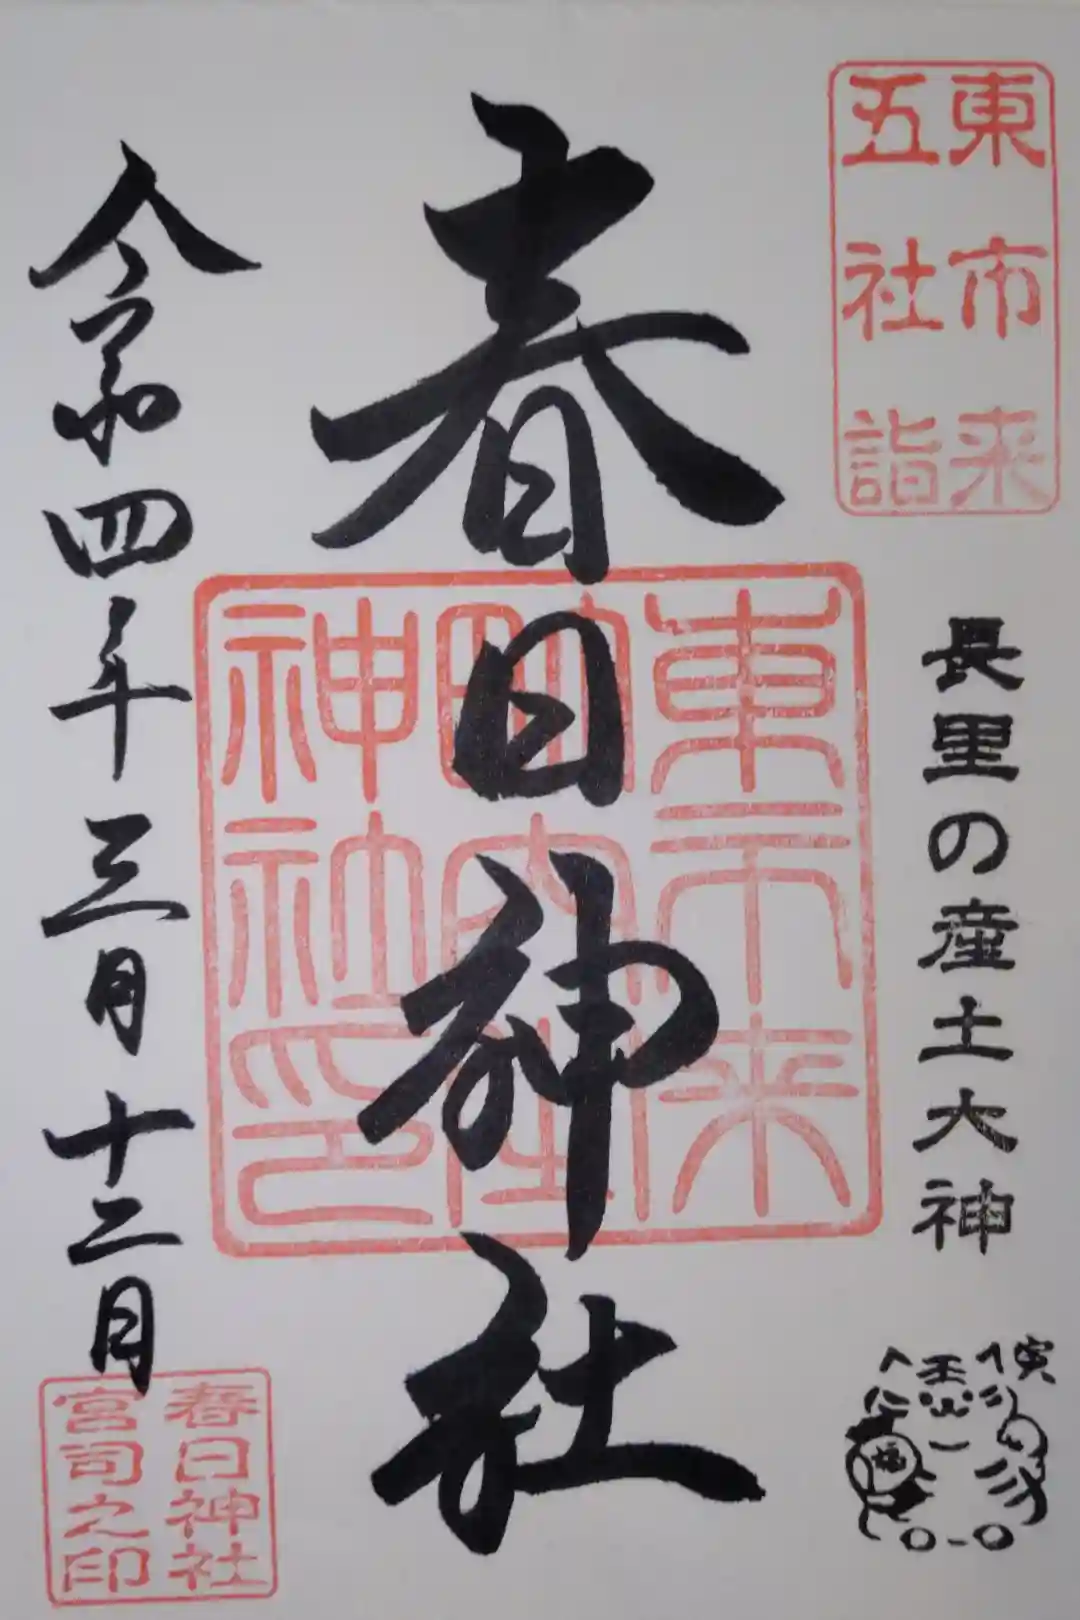 東市来
五社詣
長里の産土大神
寅
福
春日神社
東市来
神社印
令和四年三月十二日
春日神社
宮司之印